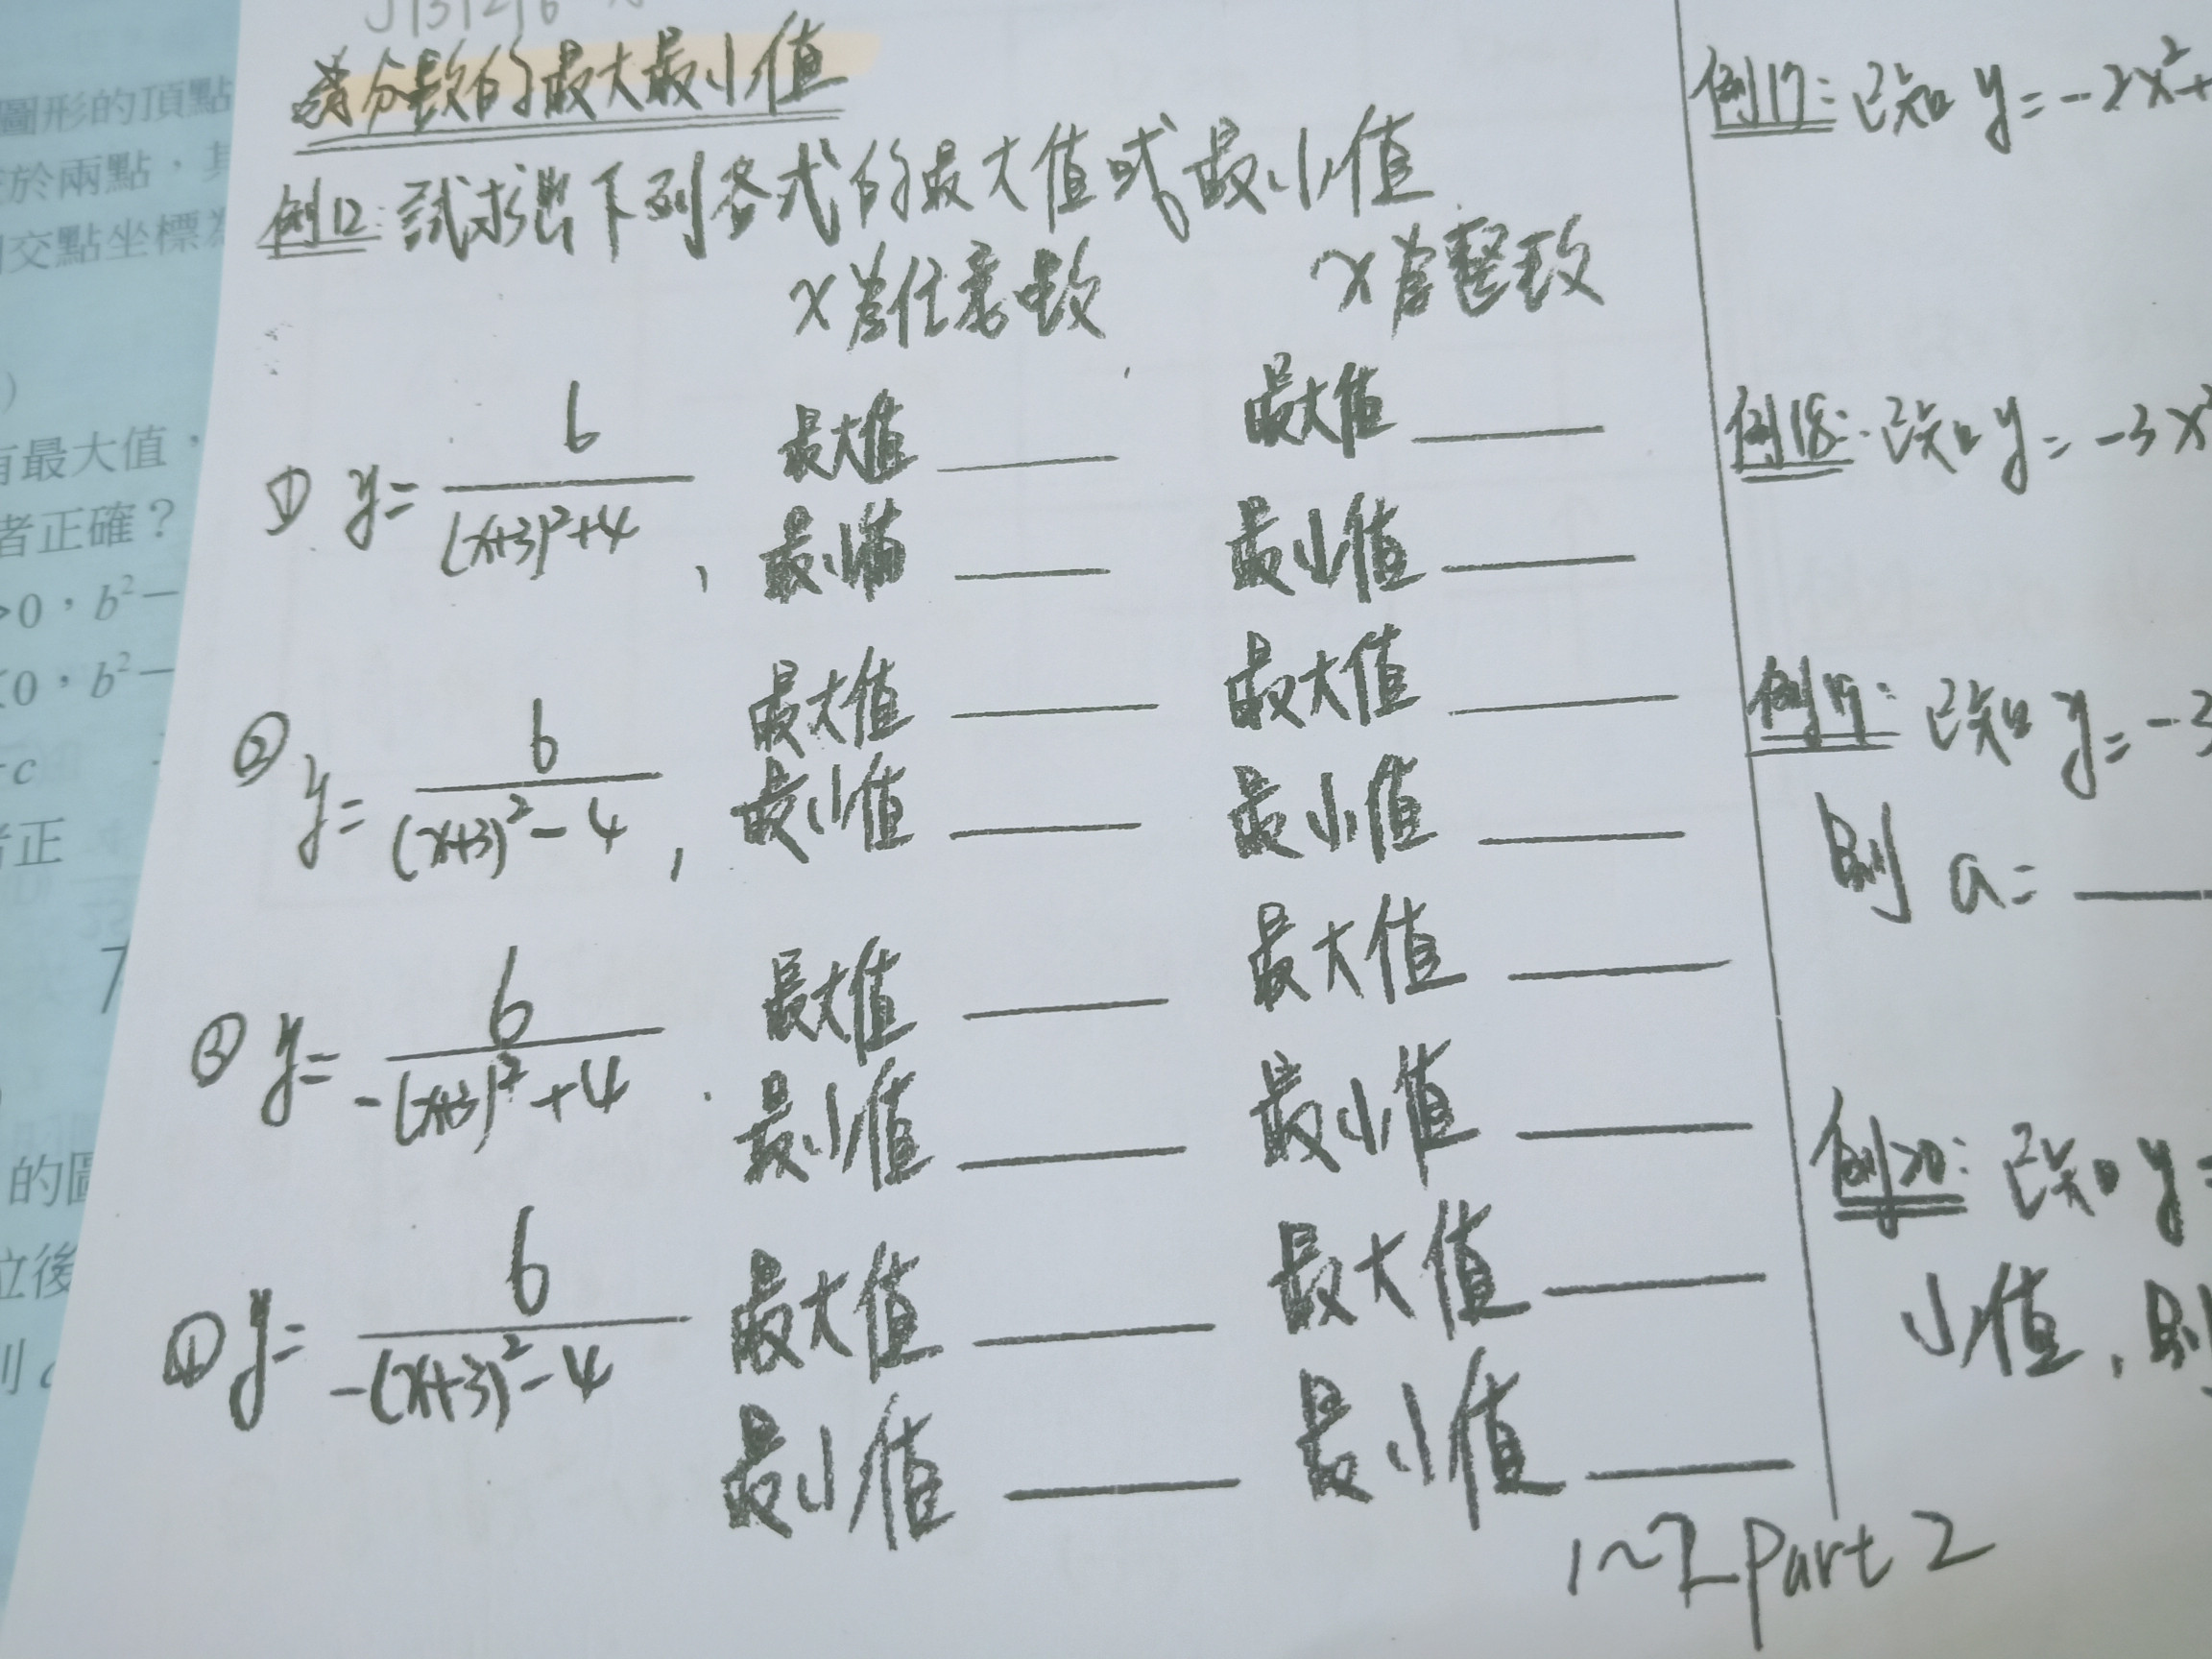 分數的最大最小值
例12: 試求出下列各式的最大值或最小值
x為任意數 x為整數
① y= 6/((x+3)²+4) , 最大值 ____ 最大值 ____
最小值 ____ 最小值 ____
② y= 6/((x+3)²-4) , 最大值 ____ 最大值 ____
最小值 ____ 最小值 ____
③ y= 6/(-(x+3)²+4) . 最大值 ____ 最大值 ____
最小值 ____ 最小值 ____
④ y= 6/(-(x+3)²-4) 最大值 ____ 最大值 ____
最小值 ____ 最小值 ____
1~2 Part 2
例17: 已知 y=-2x²+
例18: 已知 y=-3x²
例19: 已知 y=-3
則 a= ____
例20: 已知 y=
小值,則
圖形的頂點
於兩點,其
交點坐標為
)
有最大值,
者正確?
>0,b²-
<0,b²-
c
正
7
的圖
位後
則 c